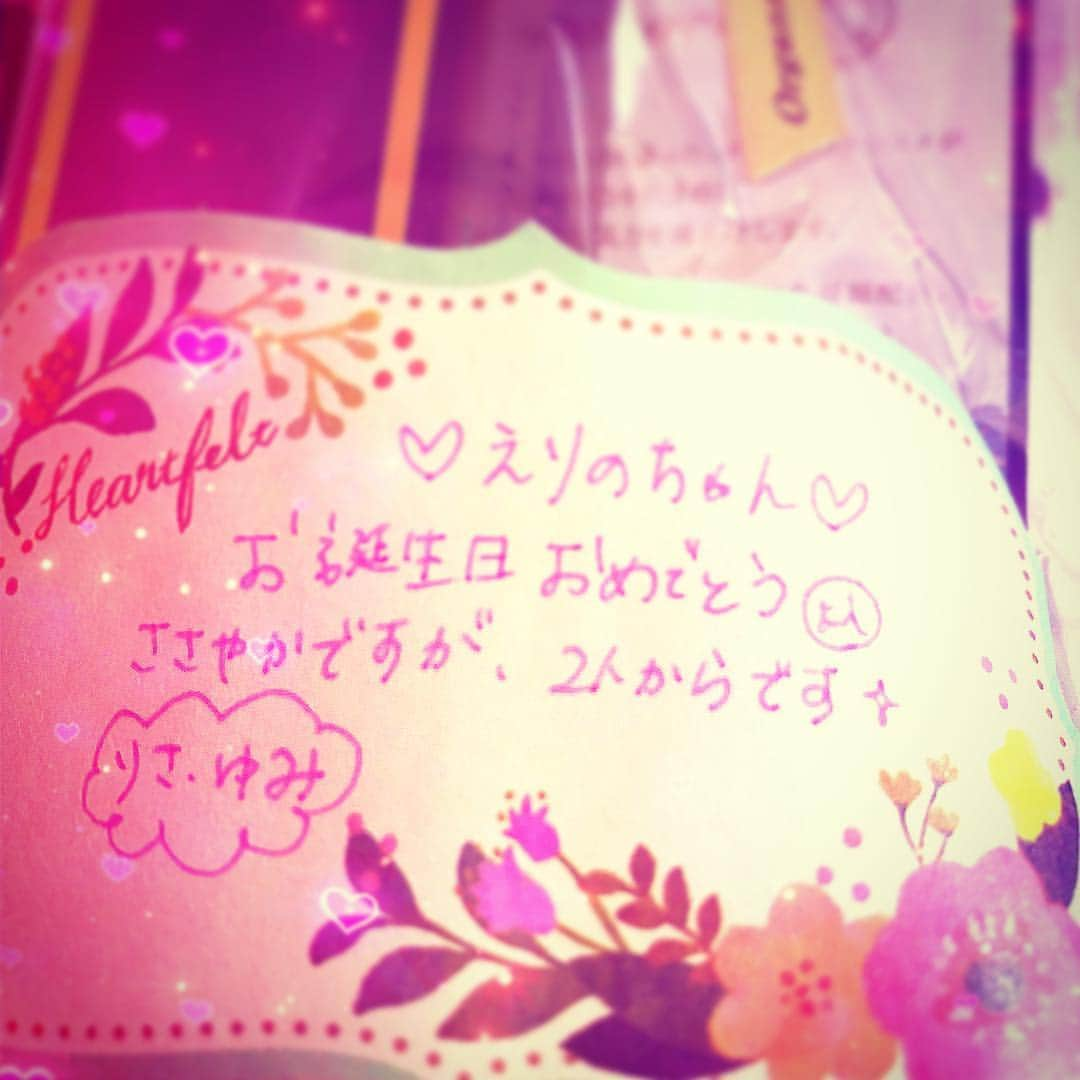 Organic
Heartfelt
♡えりのちゃん♡
お誕生日おめでとう
ささやかですが、2人からです
りさ・ゆみ